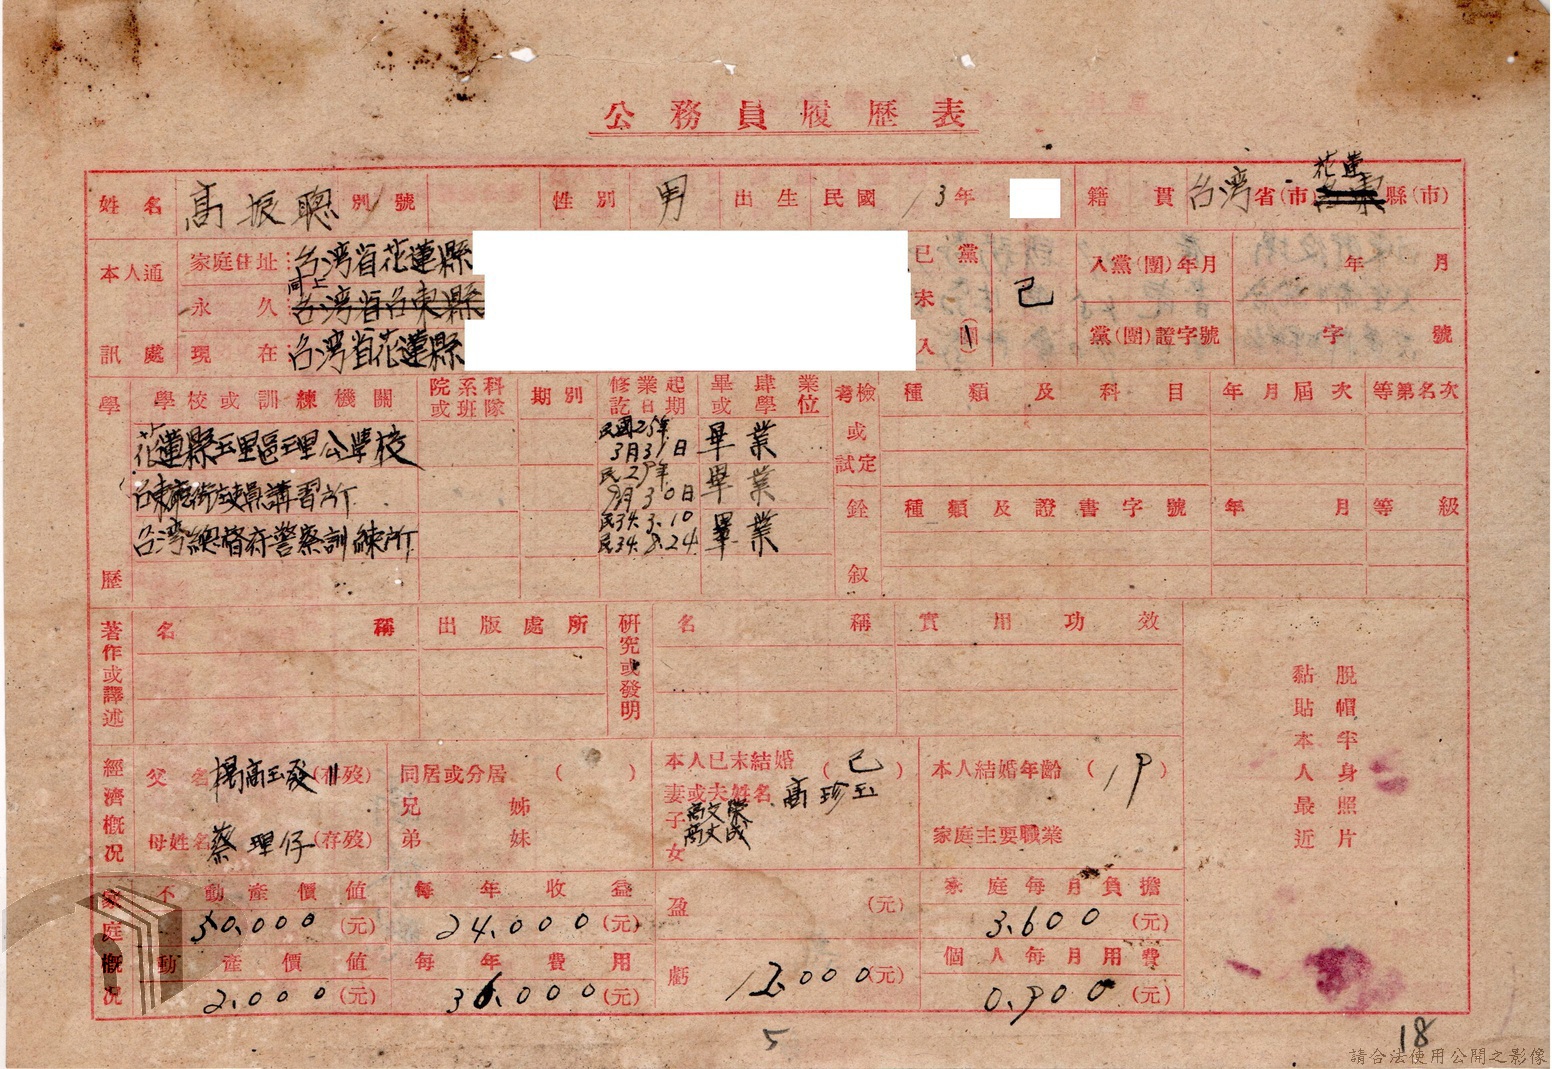 公務員履歷表
姓名 高振聰 別號 性別 男 出生 民國 13年 籍貫 台湾省(市) 花蓮縣(市)
本人通訊處
家庭住址:台湾省花蓮縣
同上
永久 台湾省台東縣
現在:台湾省花蓮縣
已未入黨(團) 已
入黨(團)年月 年 月
黨(團)證字號 字 號
學歷
學校或訓練機關 院系科或班隊 期別 修業起訖日期 畢肄業或學位
花蓮縣玉里區玉里公學校 民國25年3月31日 畢業
民29年9月30日 畢業
台湾總督府警察訓練所 民34.3.10 民34.8.24 畢業
考檢或試定 種類及科目 年月屆次 等第名次
銓叙 種類及證書字號 年月 等級
著作或譯述 名稱 出版處所
研究或發明 名稱 實用功效
脫帽半身照片
黏貼本人最近
經濟概况
父名 楊高玉發 (存殁)
母姓名 蔡理仔 (存殁)
同居或分居( )
兄 姊
弟 妹
本人已未結婚(已)
妻或夫姓名 高珍玉
子 高文榮
高文成
女
本人結婚年齡(19)
家庭主要職業
家庭概况
不動產價值 50.000(元)
動產價值 2.000(元)
每年收益 24.000(元)
每年費用 36.000(元)
盈 (元)
虧 12.000(元)
家庭每月負擔 3.600(元)
個人每月用費 0.900(元)
5
18
請合法使用公開之影像